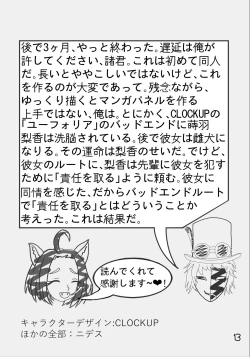 後で3ヶ月、やっと終わった。遅延は俺が
許してください、諸君。これは初めて同人
だ。長いとややこしいではないけど、これ
を作るのが大変であって。残念ながら、
ゆっくり描くとマンガパネルを作る
上手ではない、俺は。とにかく、CLOCKUPの
「ユーフォリア」のバッドエンドに蒔羽
梨香は洗脳されている。後で彼女は雌犬に
なりる。その運命は梨香のせいだ。でけど、
彼女のルートに、梨香は先輩に彼女を犯す
ために「責任を取る」ように頼む。彼女に
同情を感じた、だからバッドエンドルート
で「責任を取る」とはどういうことか
考えった。これは結果だ。
読んでくれて
感謝します~❤!
キャラクターデザイン:CLOCKUP
ほかの全部:ニデス
13